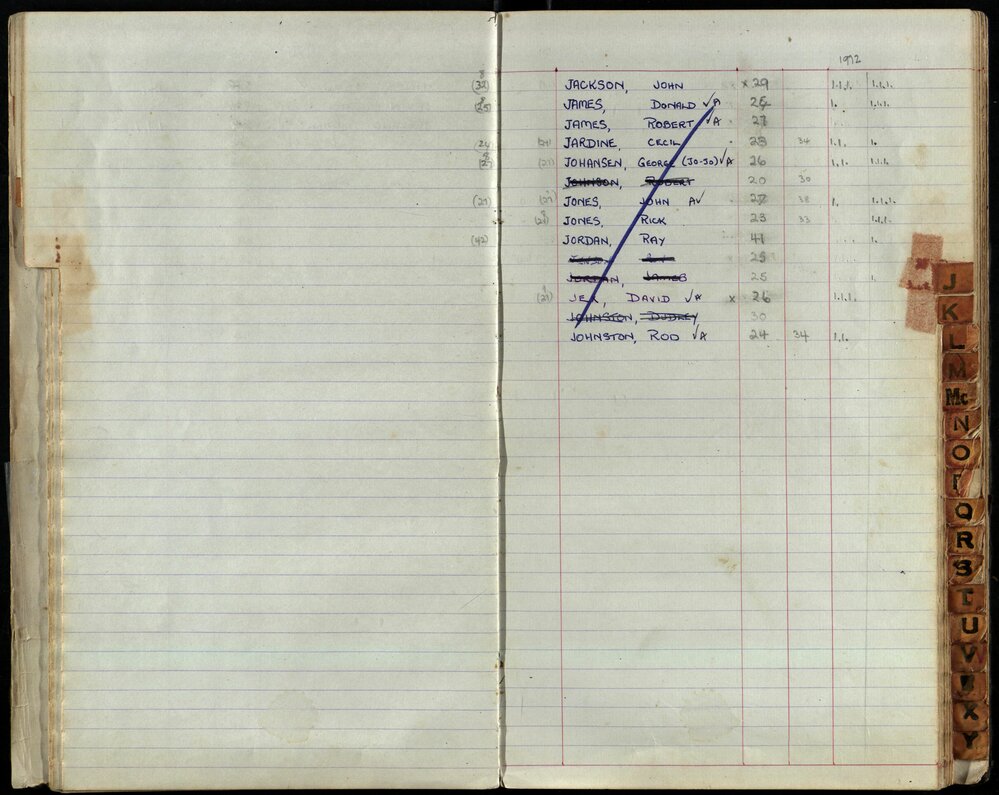 1972
8
(32) JACKSON, JOHN x 29 1.1.1. 1.1.1.
JAMES, DONALD ✓A 25 1. 1.1.1.
JAMES, ROBERT ✓A 27
JARDINE, CECIL 23 34 1.1. 1.
(21) JOHANSEN, GEORGE (JO-JO) ✓A 26 1.1. 1.1.1.
JOHNSON, ROBERT 20 30
(21) JONES, JOHN A✓ 27 38 1. 1.1.1.
JONES, RICK 23 33 1.1.1.
(42) JORDAN, RAY 41 1.
25
JORDAN, JAMES 25 1.
(21) DAVID ✓A x 26 1.1.1.
JOHNSTON, DUDLEY 30
JOHNSTON, ROD ✓A 24 34 1.1.
J
K
L
M
Mc
N
O
Q
R
S
T
U
V
X
Y